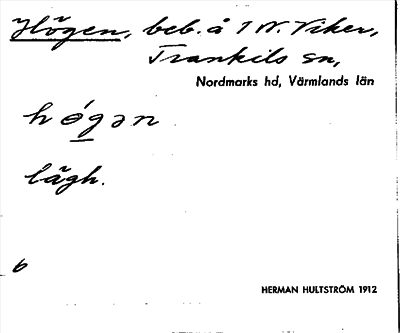 Högen, beb. å 1 W. Viker,
Trankils sn,
Nordmarks hd, Värmlands län
hógən
lägh.
6
HERMAN HULTSTRÖM 1912